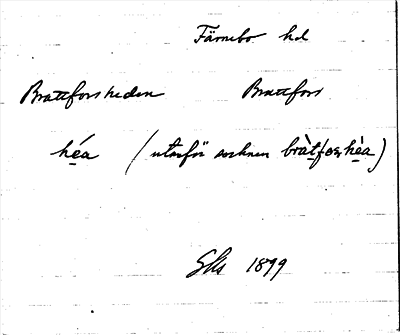 Färnebo hd
Brattforsheden Brattfors
héa (utanför socknen bràtfoṣhèa)
1899